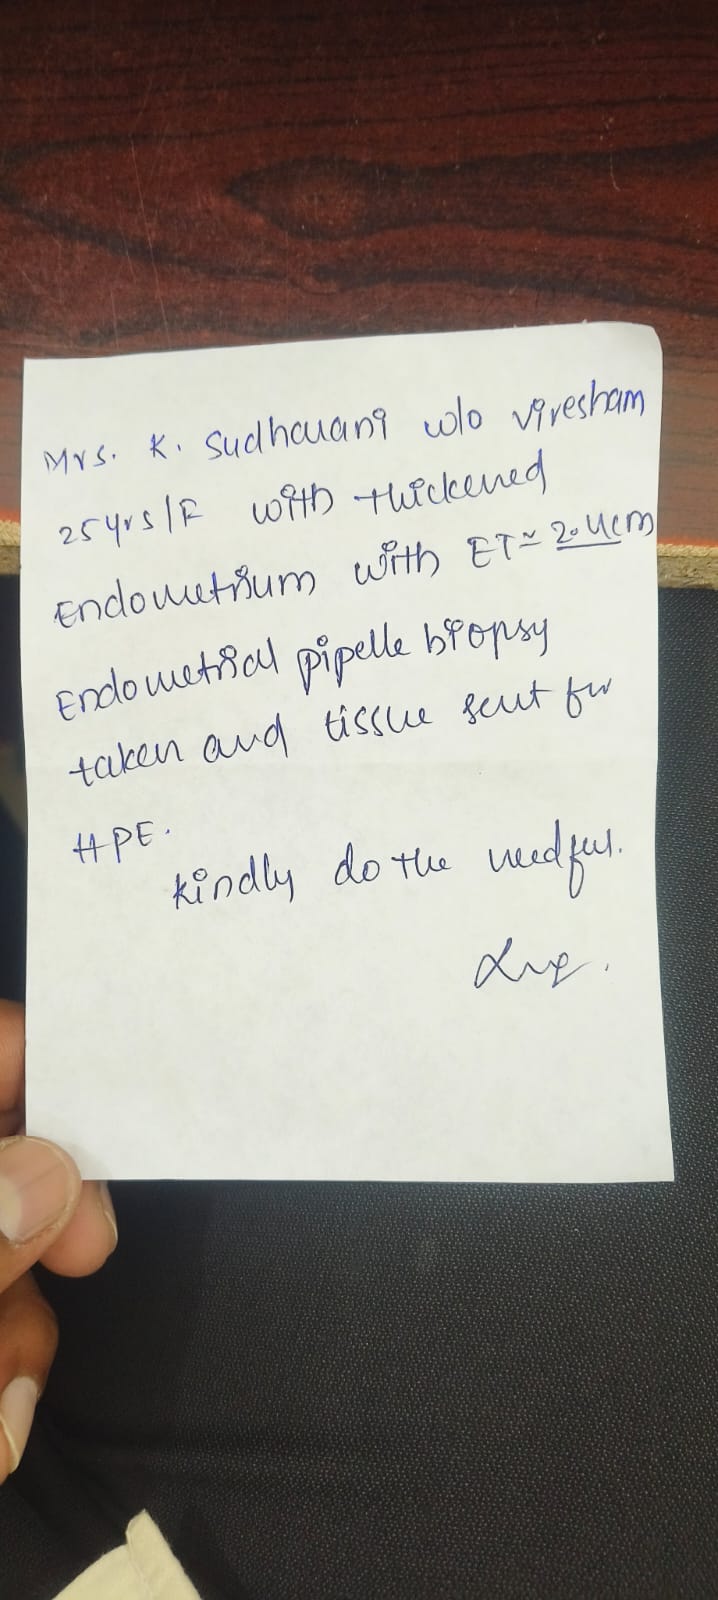 Mrs. K. Sudhauani w/o viresham
25yrs/F with thickened
Endometrium with ET≃ 2.4cm
Endometrial pipelle biopsy
taken and tissue sent for
HPE.
kindly do the needful.